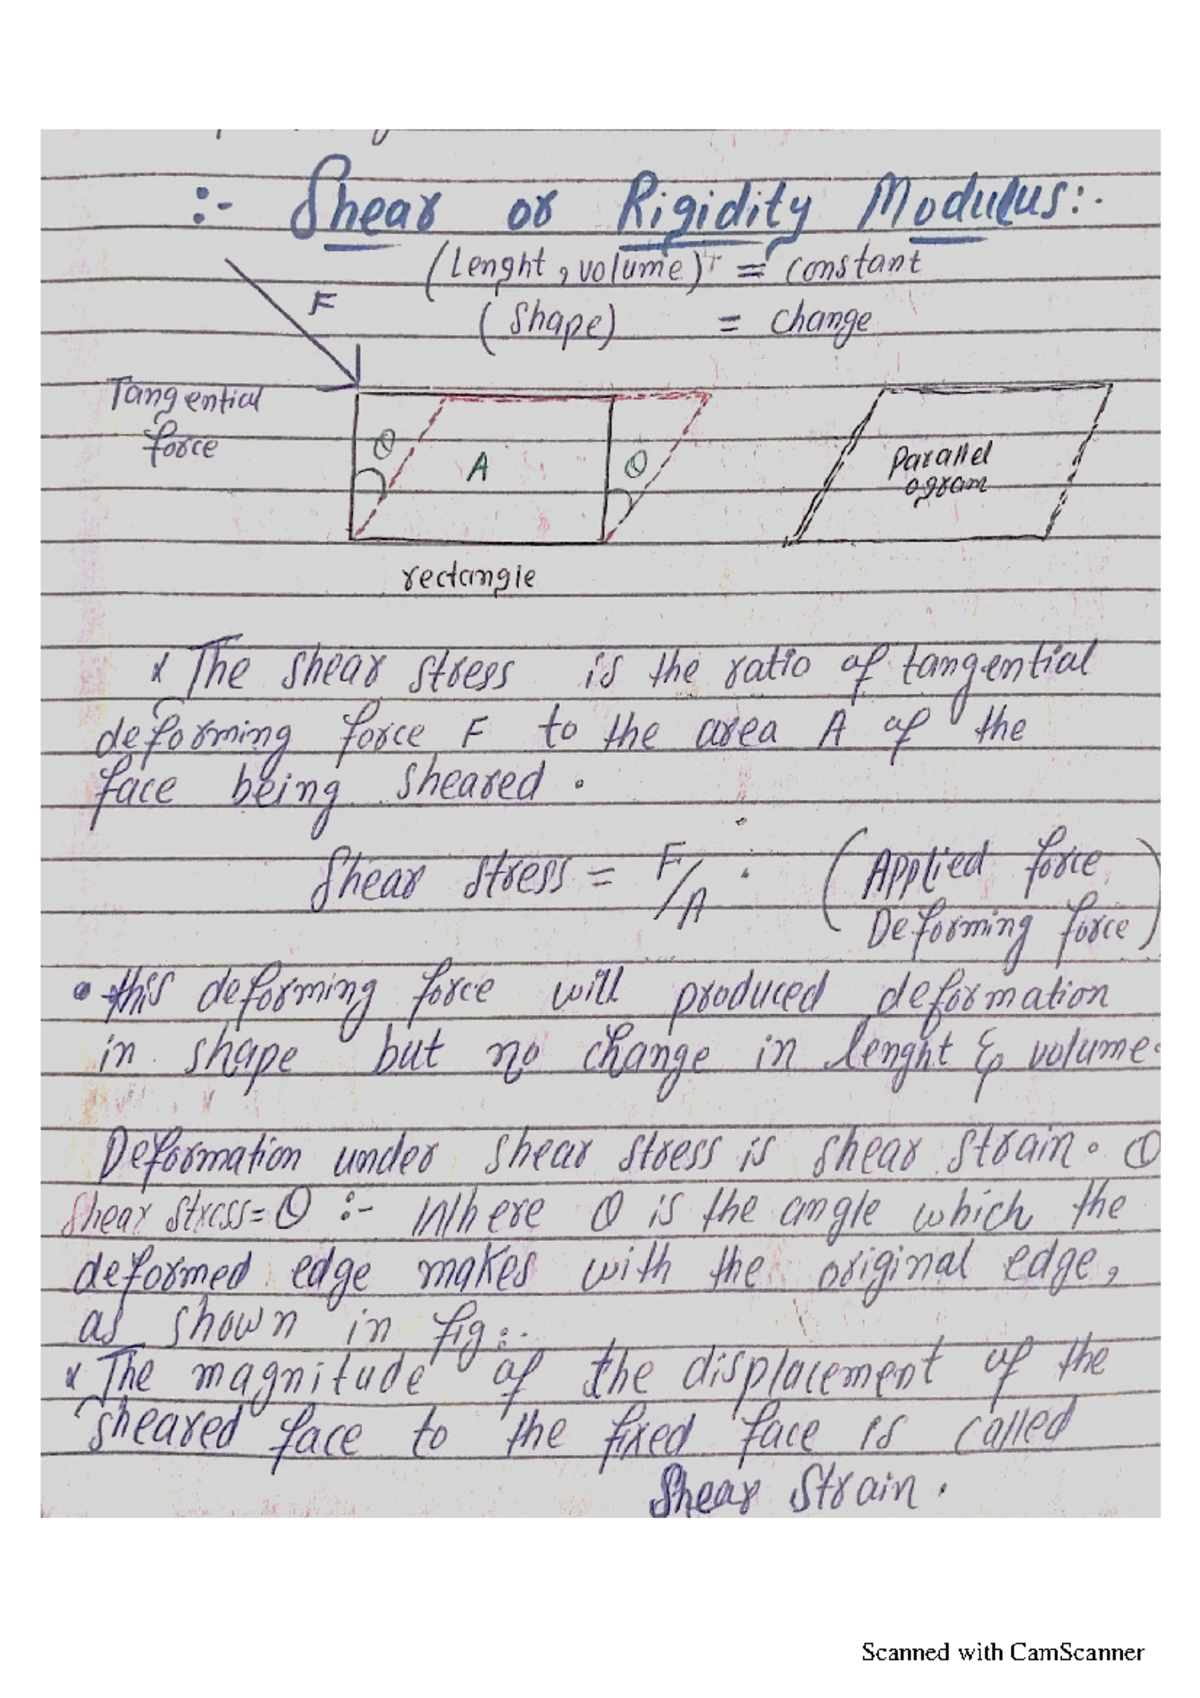 :- Shear or Rigidity Modulus:-
(Lenght, volume) = constant
(Shape) = change
F
Tangential
force
θ
A
θ
Parallel
ogram
rectangle
x The shear stress is the ratio of tangential
deforming force F to the area A of the
face being sheared.
Shear stress = F/A . (Applied force
Deforming force)
• this deforming force will produced deformation
in shape but no change in lenght & volume.
Deformation under shear stress is shear strain. θ
Shear stress = θ :- Where θ is the angle which the
deformed edge makes with the original edge,
as shown in fig:.
x The magnitude of the displacement of the
sheared face to the fixed face is called
Shear Strain.
Scanned with CamScanner